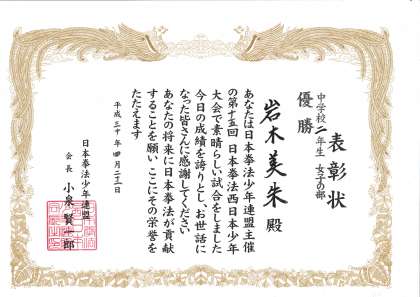 表彰状
中学校二年生 女子の部
優勝
岩木美朱 殿
あなたは日本拳法少年連盟主催
の第十五回 日本拳法西日本少年
大会で素晴らしい試合をしました
今日の成績を誇りとし、お世話に
なった皆さんに感謝してください
あなたの将来に日本拳法が貢献
することを願い ここにその栄誉を
たたえます
平成三十年 四月二十二日
日本拳法少年連盟
会長 小泉賢一郎